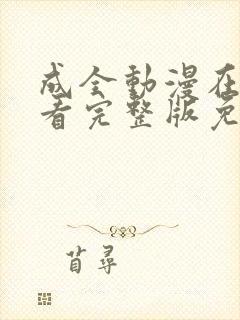 成全動漫在
看完整版免
苜尋